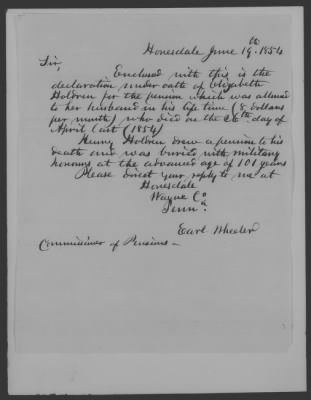 Honesdale June 19th 1854
Sir,
Enclosed with this is the
declaration under oath of Elizabeth
Holdren for the pension which was allowed
to her husband in his life time (8 Dollars
per month) who died on the 26th day of
April last (1854)
Henry Holdren drew a pension to his
death and was buried with military
honours at the advanced age of 101 years
Please direct your reply to me at
Honesdale
Wayne Co
Penna.
Earl Wheeler
Commissioner of Pensions —